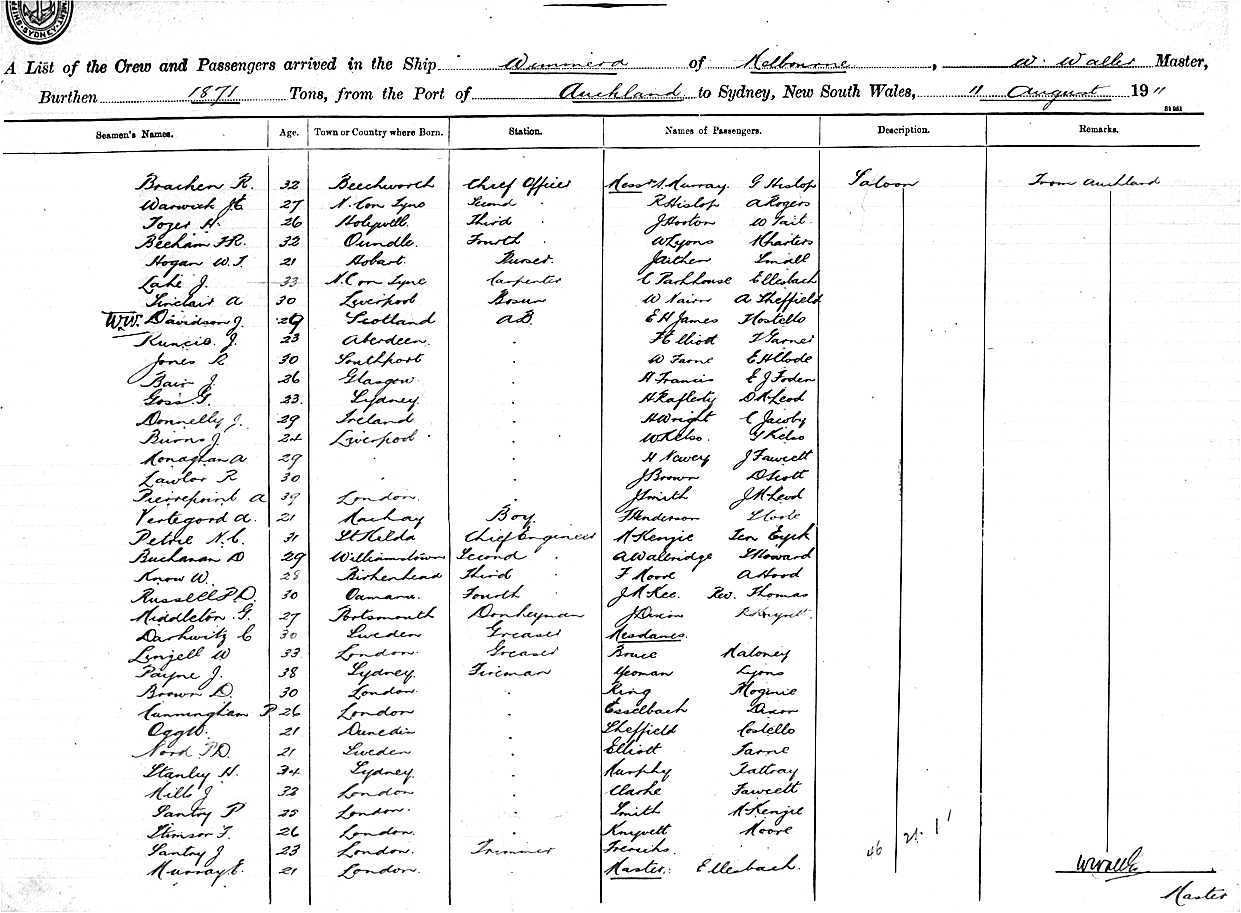 SYDNEY
A List of the Crew and Passengers arrived in the Ship Wimmera of Melbourne, W. Waller Master,
Burthen 1871 Tons, from the Port of Auckland to Sydney, New South Wales, 11 August 1911
Seamen's Names. Age. Town or Country where Born. Station. Names of Passengers. Description. Remarks.
Bracken R. 32 Beechworth Chief Officer Messrs S. Murray. G Hislop Saloon From Auckland
Warwick 27 N. Con Tyne Second " R Hislop A Rogers
Tozer H. 26 Holywell. Third " J Horton W Tait
Beeham F.R. 32 Oundle. Fourth " W Lyons Kharters
Hogan W.J. 21 Hobart. Purser. J Aitken Small
Lake J. 33 N. C on Tyne Carpenter C Parkhouse Ellesbach
Sinclair A 30 Liverpool Bosun W Nairn A Sheffield
W.W. Davidson J. 29 Scotland A.B. E H James Kostello
Kuncis. J. 23 Aberdeen. " F Elliott T Garner
Jones R 30 Southport " W Farne E H Clode
Bair J 26 Glasgow. " H Francis E J Foden
Goss G. 23. Sydney. " H Rafferty D McLeod
Donnelly J. 29 Ireland " H Wright C Jacoby
Burns J. 24 Liverpool " W Kelso. G Kelso
Monaghan A 29 " " H Newey J Fawcett
Lawlor R 30 " " J Brown D Scott
Pierrepoint A 39 London. " J Smith J McLeod
Vertegord A. 21 Mackay Boy. Henderson
Petrie N.C. 31 St Kilda Chief Engineer McKenzie Ten Eyck
Buchanan D 29 Williamstown Second " A Walbridge S Howard
Know W. 28 Birkenhead Third " F Moore A Hood
Russell P.D. 30 Oamaru. Fourth " J McKee. Rev. Thomas
Middleton G. 27 Portsmouth Donkeyman J Dixon R Knyvett.
Darkwitz C 30 Sweden Greaser Mesdames.
Linzell W 33 London. Greaser Bruce Maloney
Payne J. 38 Sydney. Fireman Yeoman Lyons
Brown D. 30 London. " King Mogine
Cunningham P 26 London " Esselbach Dixon
Ogg W. 21 Dunedin " Sheffield Costello
Nord P.D. 21 Sweden " Elliott Farne
Stanley H. 34 Sydney. " Murphy Rattray
Mills J 32 London " Clarke Fawcett
Santry P 25 London. " Smith McKenzie
Stimson T. 26 London. " Knyvett Moore
Santry J 23 London. Trimmer Frenchs. 46
Murray E. 21 London. " Master. Ellesbach. W Waller
Master